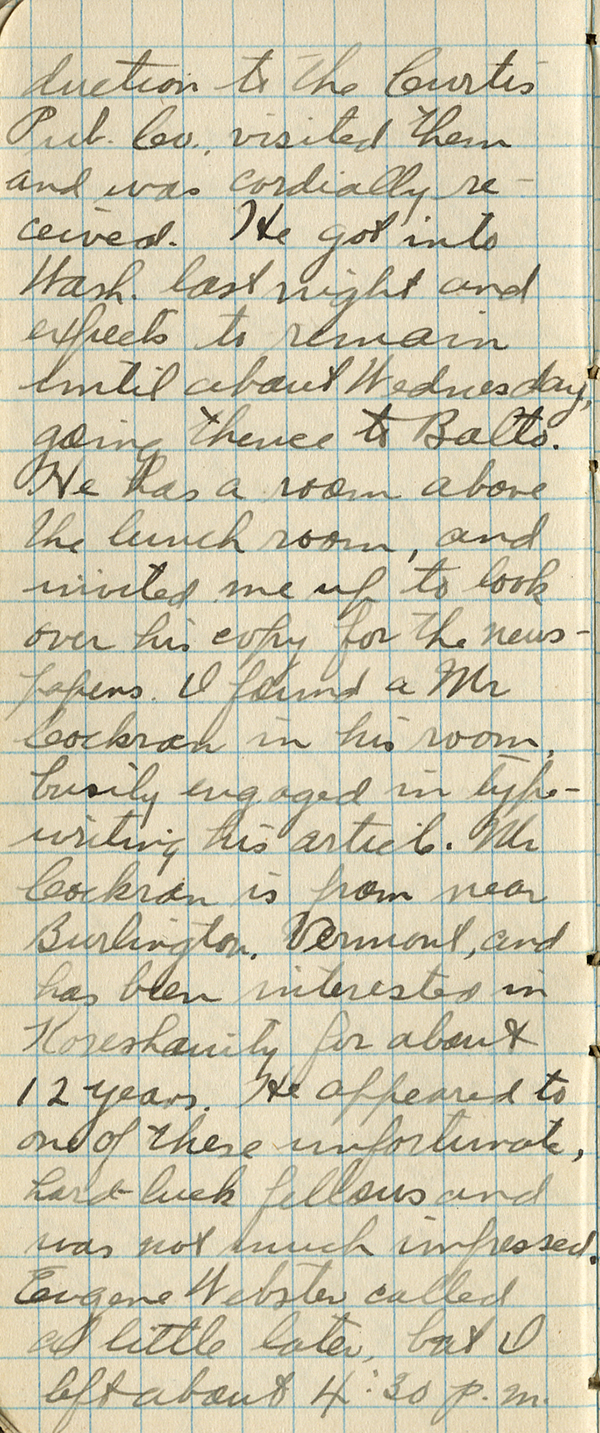 duction to the Curtis
Pub. Co., visited them
and was cordially re-
ceived. He got into
Wash. last night and
expects to remain
until about Wednesday,
going thence to Balto.
He has a room above
the lunch room, and
invited me up to look
over his copy for the news-
papers. I found a Mr
Cockran in his room,
busily engaged in type-
writing his article. Mr
Cockran is from near
Burlington, Vermont, and
has been interested in
Koreshanity for about
12 years. He appeared to
one of these unfortunate,
hard-luck fellows and
was not much impressed.
Eugene Webster called
a little later, but I
left about 4:30 p.m.